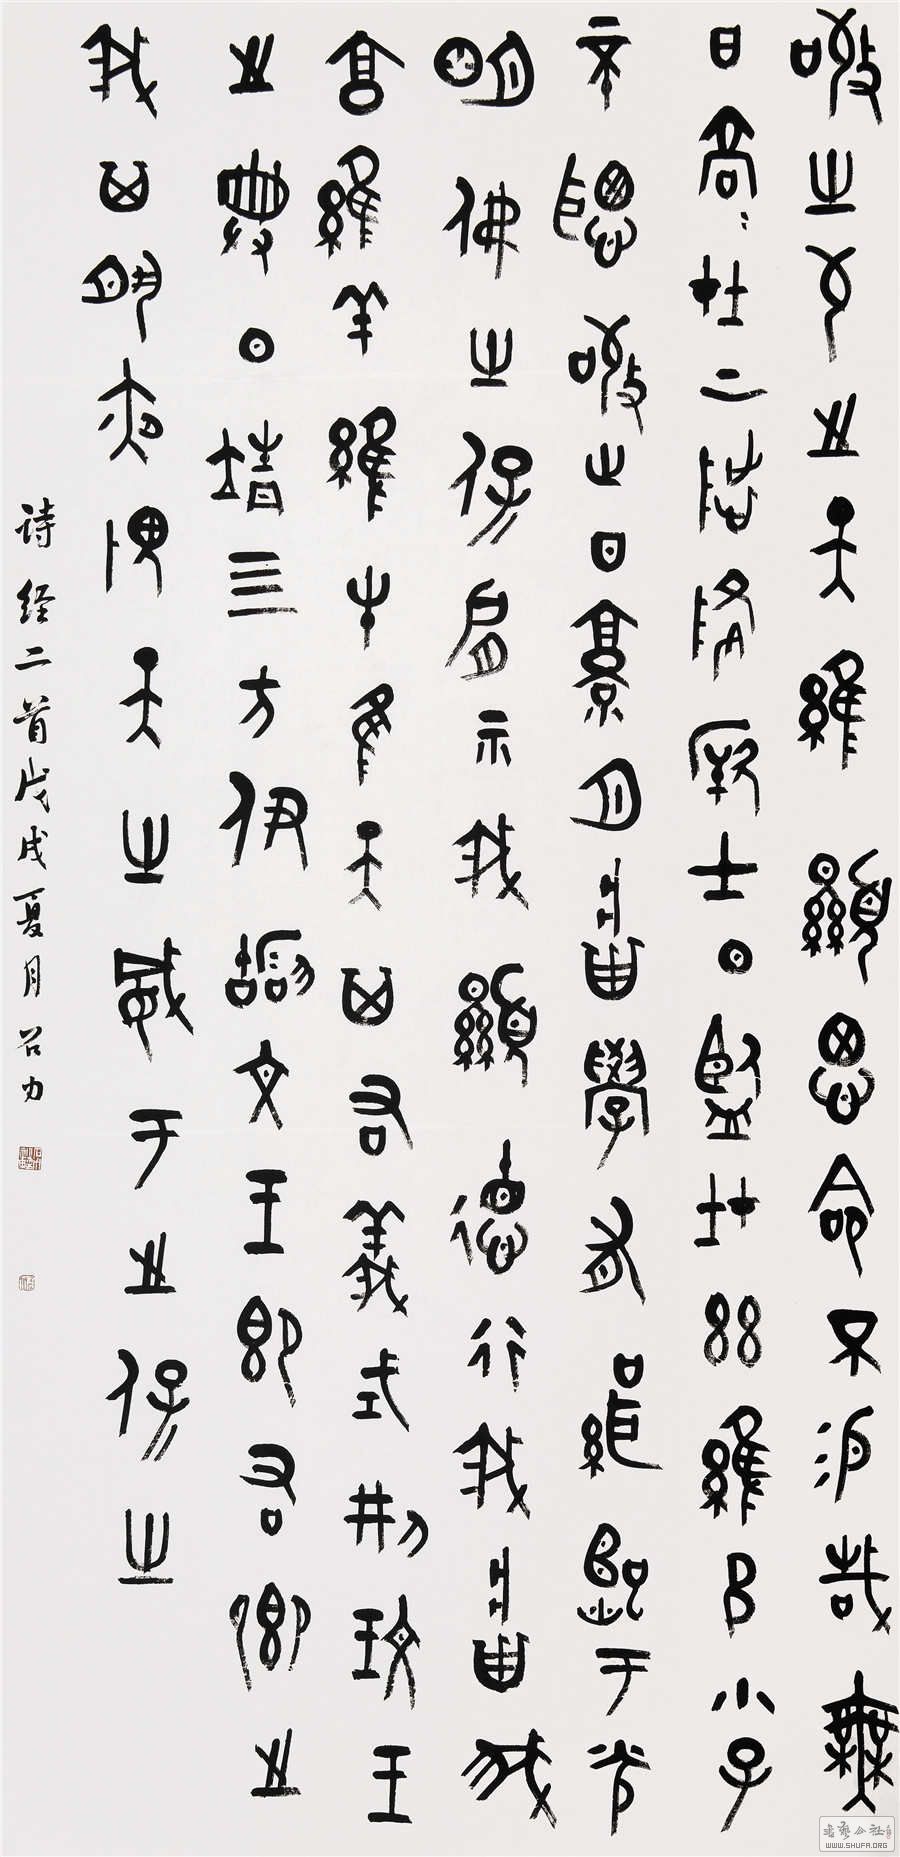 敬之敬之天維顯思命不易哉無
曰高=在上陟降厥士日監在茲維予小子
不聰敬止日就月將學有緝熙于光
明佛時仔肩示我顯德行我將我
享維羊維牛隹天其右儀式刑文王
之典日靖四方伊嘏文王既右饗之
我其夙夜畏天之威于時保之
诗经二首戊戌夏月召力
WWW.SHUFA.ORG